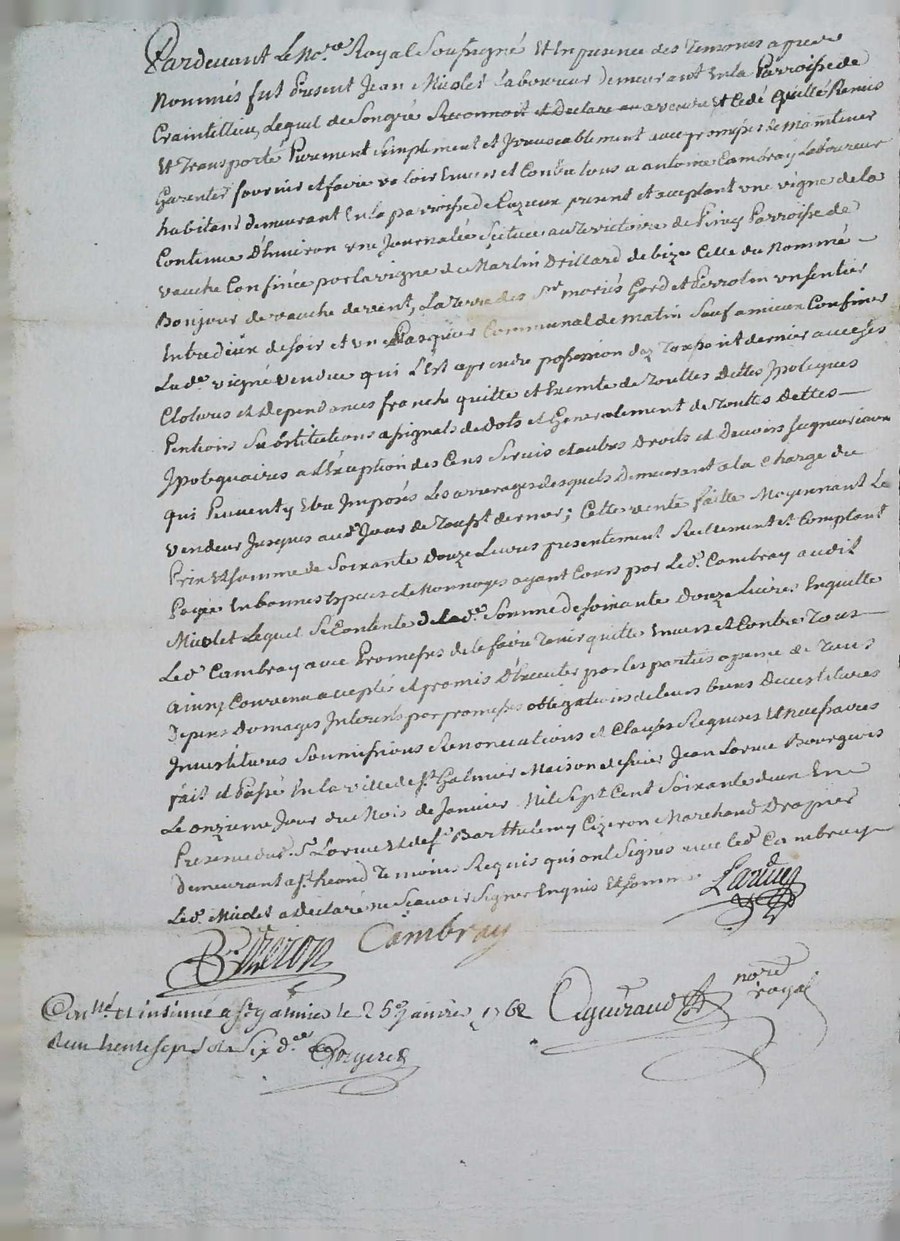 Pardevant Le No.re Royal Soussigné Et En presence des Temoins apres
Nommés fut Present Jean Miolet Laboureur demeurant En la Parroisse de
Craintillieu, Lequel de Son gré Reconnoit et Declare avoir vendu Et Cedé Quitté Remis
Et Transporté Purement Simplement et Irrevocablement avec promesses de Maintenir
Garentir fournir et faire valoir Envers et Contre tous a antoine Cambray Laboureur
habitant demeurant En la parroisse de present et aceptant une vigne de la
Contenue D'Environ une Journalée Scituée au Territoire de Parroisse de
vauche Confinée par la vigne de Martin Drillard de bize Celle du Nommé
Bonjour de vauche de vent, La Terre des S.rs mariés Gord et Perrolin un Sentier
Entredeux de Soir et un Pasquier Communal de matin Sauf a mieux Confiner
Lad.e vigne vendue qui L'Est a prendre possession dez Toussaint dernier avec Ses
Clotures et Dependances franche quitte et Exemte de Touttes Dettes Ipoteques
Pentions Substitutions assignals de dots et Generalement de Touttes Dettes
Ipotequaires a L'Exception des Cens Servis et autres Droits et Devoirs Seigneuriaux
qui Peuvent y Etre Imposés Les arrerages desquels Demeurant a la Charge du
vendeur Jusques aud.t Jour de Touss.t dernier; Cette vente faitte Moyennant Le
Prix Et Somme de Soixante Douze Livres presentement Reellement et Comptant
Payée En bonnes Especes de Monnoyes ayant Cours par Led.t Cambray audit
Miolet Lequel Se Contente de lad.e Somme de Soixante Douze Livres En quitte
Led.t Cambray avec Promesses de le faire Tenir quitte Envers et Contre Tous
ainsy Convenu acepté et promis D'Executer par les parties a peine de Tous
Depens Domages Interets par promesses obligations de leurs biens Devestitures
Investitures Soumissions Renonciations et Clauses Requises Et necessaires
fait et Passé En la ville de S.t Galmier Maison de Sieur Jean Lornue Bourgeois
Le onzieme Jour du Mois de Janvier Mil Sept Cent Soixante deux En
Presence dud. S.r Et de S.r Barthelemy Cizeron Marchand Drapier
Demeurant Temoins Requis qui ont Signés avec led.t Cambray
Led.t Miolet a Declaré ne Scavoir Signer Enquis Et Sommé
B. Cizeron Cambray
not.re royal
Con.lé et insinué a S.t galmier le 25e janvier 1762
Reçu trente sept sols six d.ers